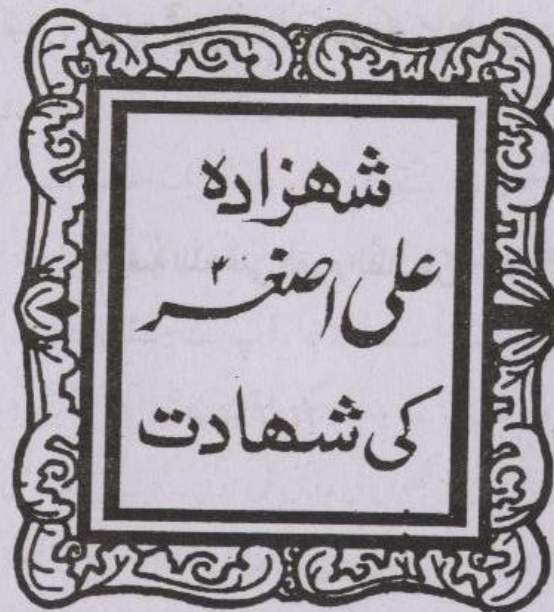 شهزاده
علی اصغر ؑ
کی شهادت